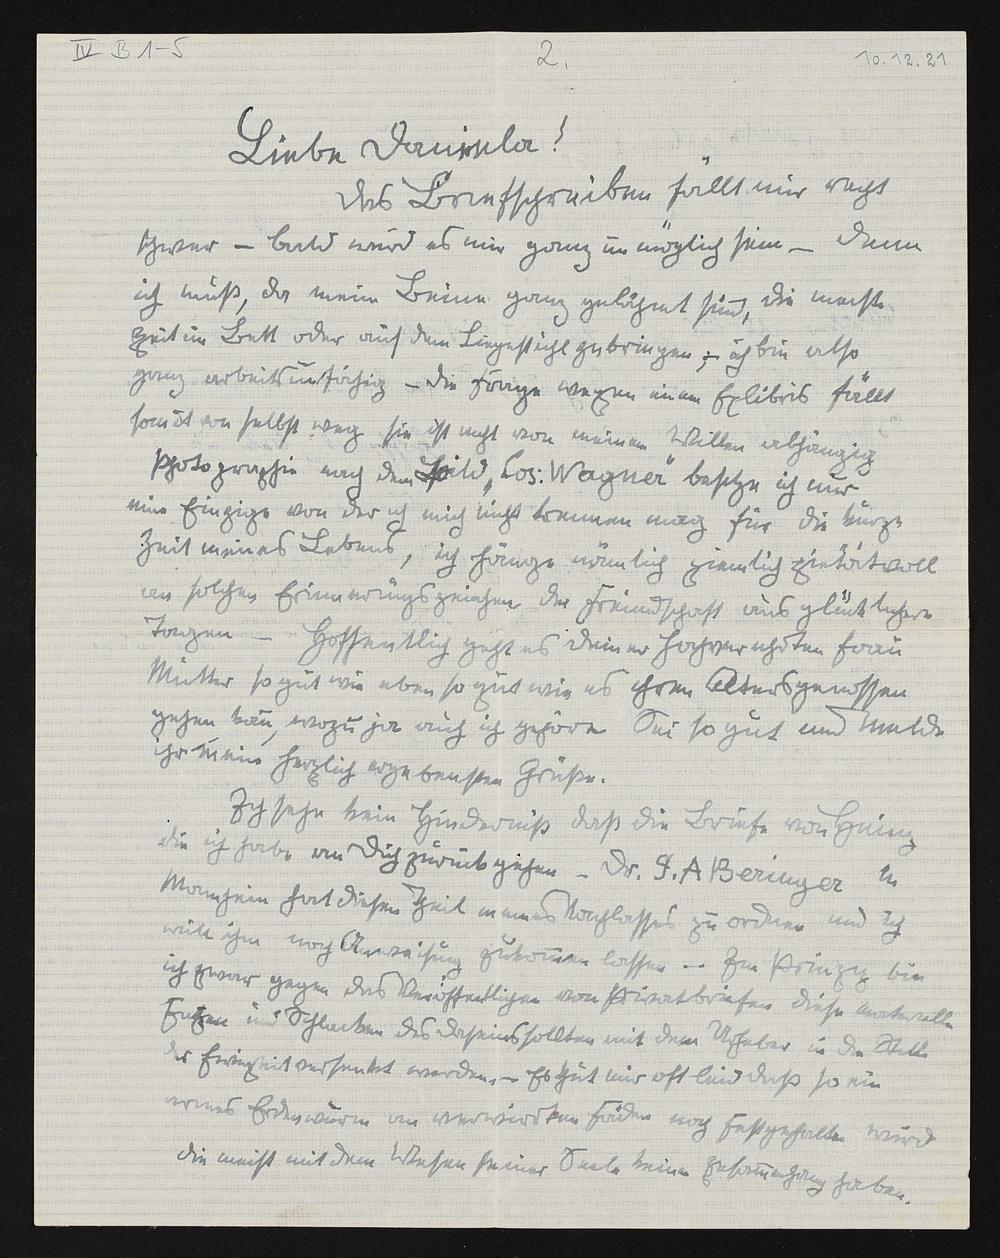 IV B 1-5 2. 10.12.21
Liebe Daniela!
das Briefschreiben fällt mir recht
schwer – bald wird es mir ganz unmöglich sein – denn
ich muß, da meine Beine ganz gelähmt sind, die meiste
Zeit im Bett oder auf dem Liegestuhl zubringen; ich bin also
ganz arbeitsunfähig – die Frage wegen einem Exlibris fällt
somit von selbst weg sie ist nicht von meinem Willen abhängig
Photographie nach dem Bild „Cos: Wagner" besitze ich nur
eine Einzige von der ich mich nicht trennen mag für die kurze
Zeit meines Lebens, ich hänge nämlich ziemlich pietätvoll
an solchen Erinnerungszeichen der Freundschaft aus glücklichern
Tagen – Hoffentlich geht es deiner hochverehrten Frau
Mutter so gut wie eben so gut wie es ihren Altersgenossen
gehen kañ, wozu ja auch ich gehöre Sei so gut und melde
ihr meine herzlich ergebensten Grüße.
Ich sehe kein Hinderniß daß die Briefe von
die ich habe an Dich zurück gehen – Dr. J. A Beringer in
Manheim hat diesen Theil meines Nachlasses zu ordnen und ich
will ihm noch Anweisung zukom̄en lassen – Im Prinzip bin
ich zwar gegen das Veröffentlichen von Privatbriefen diese materielle
Fetzen und Schlacken des Daseins sollten mit dem Urheber in die Stille
der Ewigkeit versenkt werden. – Es thut mir oft leid daß so ein
armes Erdenwurm an verwirrten Fäden noch festgehalten wird
die meist mit dem Wesen seiner Seele keinen Zusam̄enhang haben.